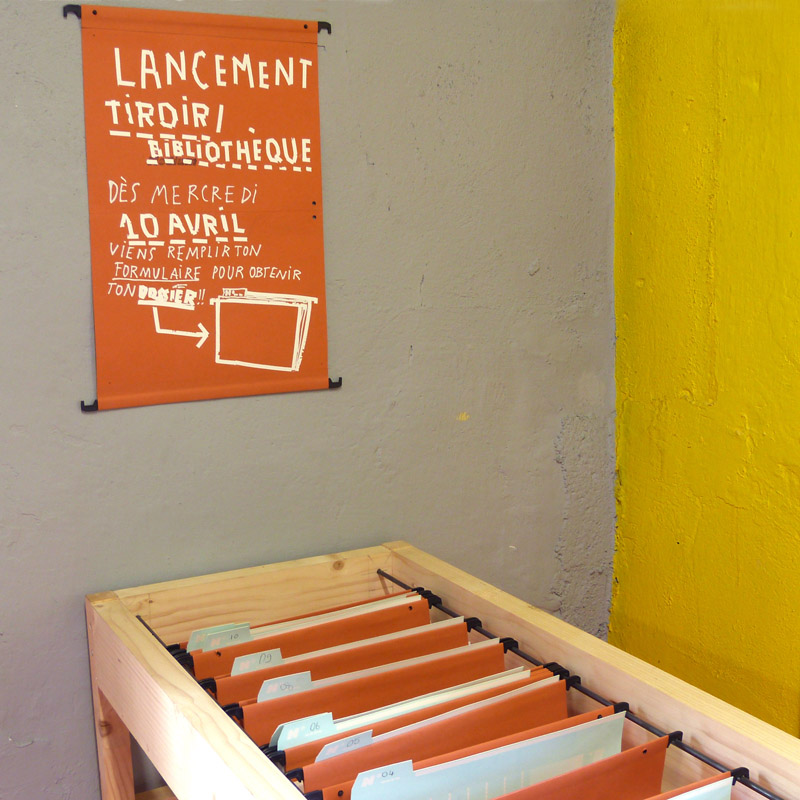 LANCEMENT
TIROIR/
BIBLIOTHÈQUE
DÈS MERCREDI
10 AVRIL
VIENS REMPLIR TON
FORMULAIRE POUR OBTENIR
TON DOSSIER!!
10
09
06
05
04